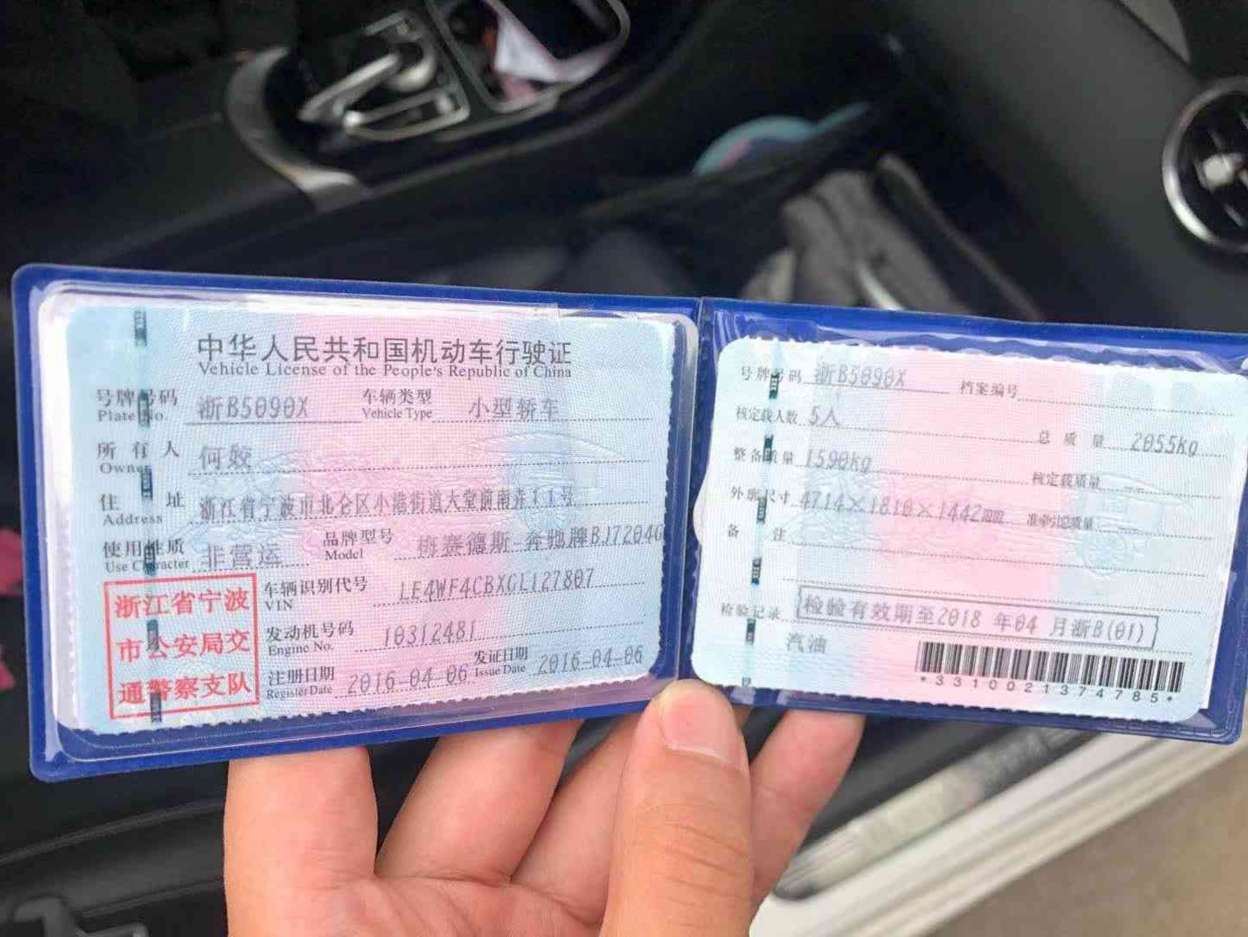 中华人民共和国机动车行驶证
Vehicle License of the People's Republic of China
号牌号码 浙B5090X 车辆类型 小型轿车
Plate No. Vehicle Type
所有人 何姣
Owner
住址 浙江省宁波市北仑区小港街道大堂前南弄11号
Address
使用性质 非营运 品牌型号 梅赛德斯-奔驰牌BJ7204G
Use Character Model
浙江省宁波
市公安局交
通警察支队
车辆识别代号 LE4WF4CBXGL127807
VIN
发动机号码 10312481
Engine No.
注册日期 2016-04-06 发证日期 2016-04-06
Register Date Issue Date
号牌号码 浙B5090X 档案编号
核定载人数 5人 总质量 2055kg
整备质量 1590kg 核定载质量
外廓尺寸 4714×1810×1442mm 准牵引总质量
备注
检验记录 检验有效期至2018年04月浙B(01)
汽油
*3310021374785*